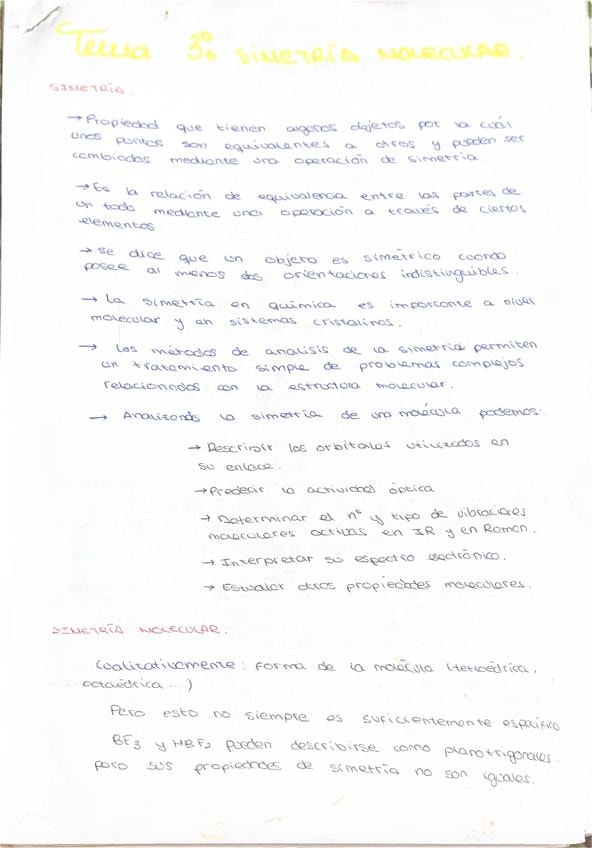 Tema 3º SIMETRÍA MOLECULAR.
SIMETRÍA.
→ Propiedad que tienen algunos objetos por la cuál
unos puntos son equivalentes a otros y pueden ser
cambiados mediante una operación de simetría.
→ Es la relación de equivalencia entre las partes de
un todo mediante una operación a través de ciertos
elementos.
→ Se dice que un objeto es simétrico cuando
posee al menos dos orientaciones indistinguibles.
→ La simetría en química es importante a nivel
molecular y en sistemas cristalinos.
→ Los métodos de analisis de la simetría permiten
un tratamiento simple de problemas complejos
relacionados con la estructura molecular.
→ Analizando la simetría de una molécula podemos:
→ Describir los orbitales utilizados en
su enlace.
→ Predecir la actividad óptica
→ Determinar el nº y tipo de vibraciones
moleculares activas en IR y en Raman.
→ Interpretar su espectro electrónico.
→ Estudiar otras propiedades moleculares.
SIMETRÍA MOLECULAR.
Cualitativamente: forma de la molécula (tetraédrica,
octaédrica...)
Pero esto no siempre es suficientemente específico
BF3 y HBF2 pueden describirse como planotrigonales,
pero sus propiedades de simetría no son iguales.